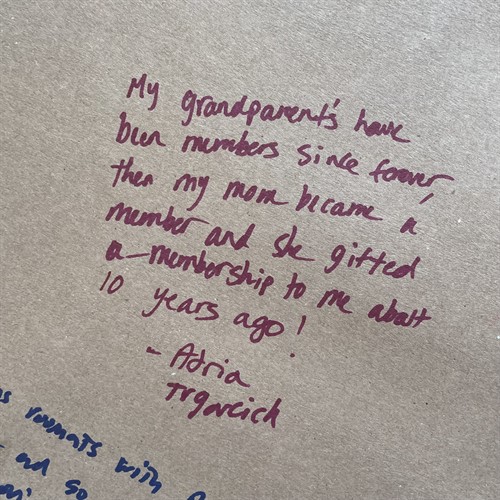 My grandparent's have
been members since forever,
then my mom became a
member and she gifted
a membership to me abott
10 years ago!
- Adria
Trgovcich
roomats with
ad so